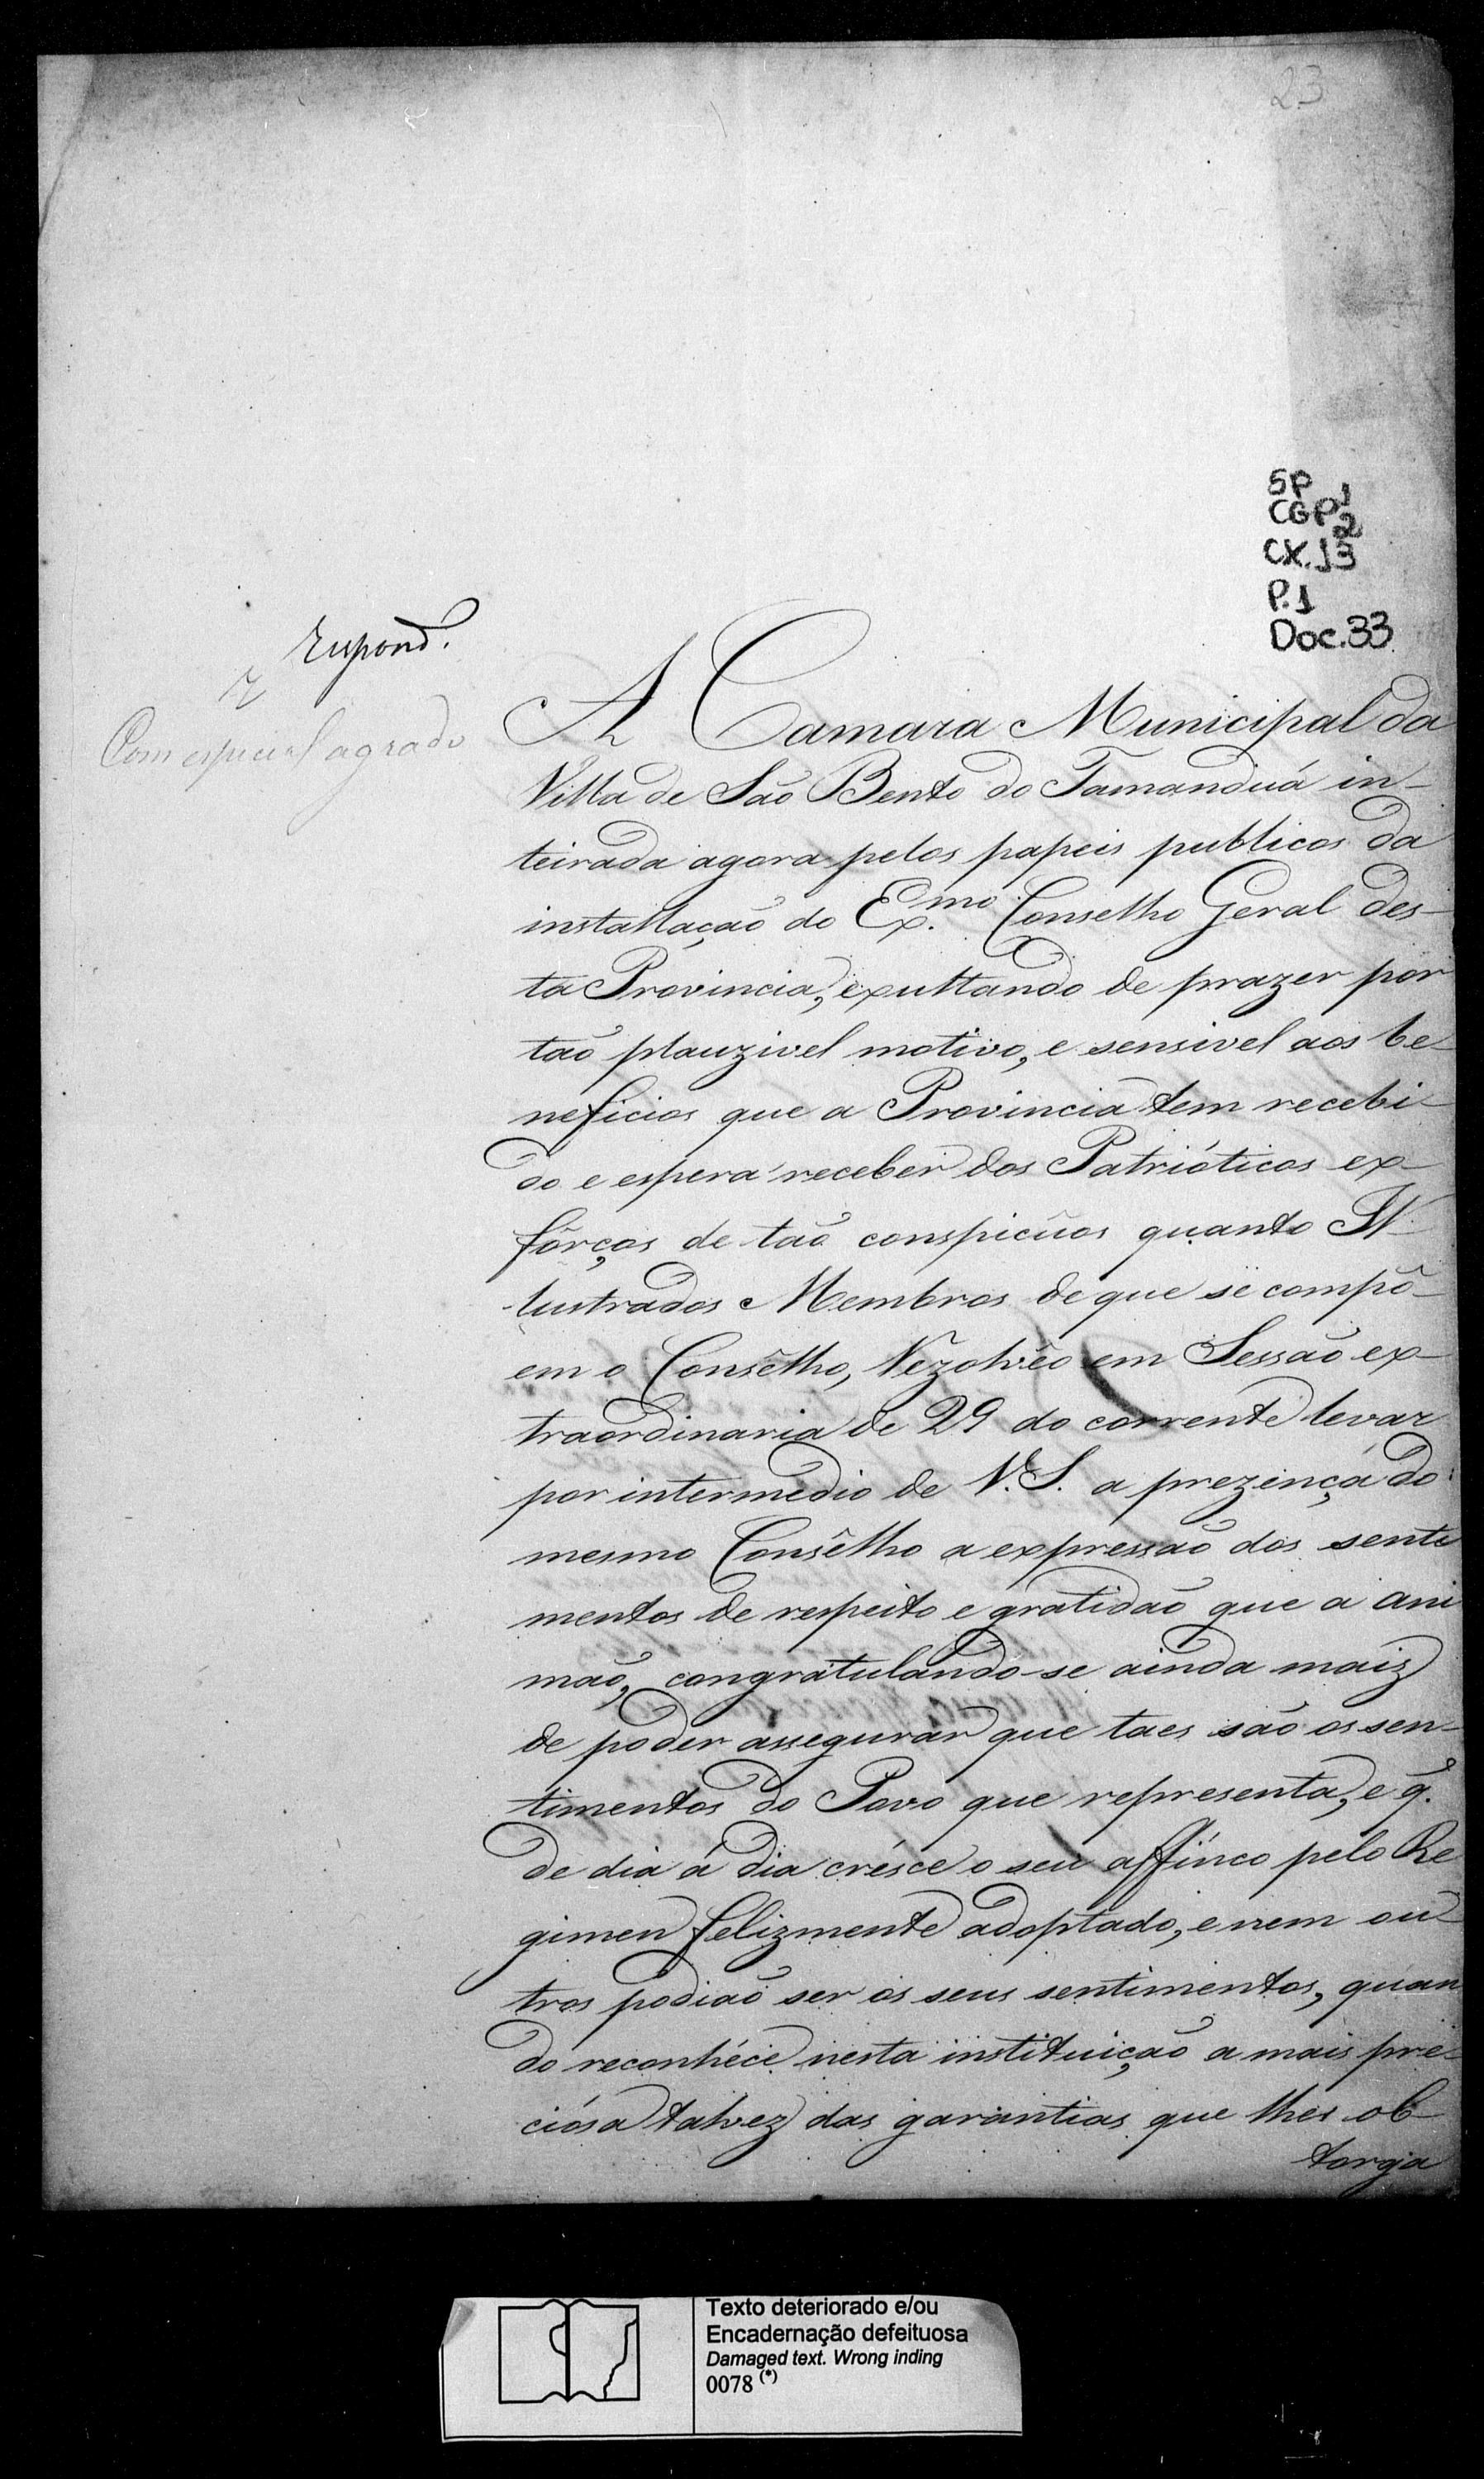 23
SP
CGP 1/2
CX.13
P.1
Doc.33
Respond.
Com especial agrado
A Camara Municipal da
Villa de São Bento do Tamanduá in-
teirada agora pelos papeis publicos da
installação do Ex.mo Conselho Geral des-
ta Provincia, exultando de prazer por
tão plauzivel motivo, e sensivel aos be-
neficios que a Provincia tem recebi-
do e espera receber dos Patrióticos ex-
fórços de tão conspicuos quanto Il-
lustrados Membros de que se compõ-
em o Consêlho, Rezolvêo em Sessão ex-
traordinaria de 29 do corrente levar
por intermedio de V. S. a prezença do
mesmo Consêlho a expressão dos senti
mentos de respeito e gratidão que a ani
mão, congratulando-se ainda maiz
de poder assegurar que taes são os sen-
timentos do Povo que representa, e q̃.
de dia á dia crésce o seu affinco pelo Re
gimen felizmente adoptado, e nem ou-
tros podião ser os seus sentimentos, quan
do reconhéce nesta instituição a mais pre-
ciósa talvez das garantias que lhes ob-
torga
Texto deteriorado e/ou
Encadernação defeituosa
Damaged text. Wrong inding
0078 (*)